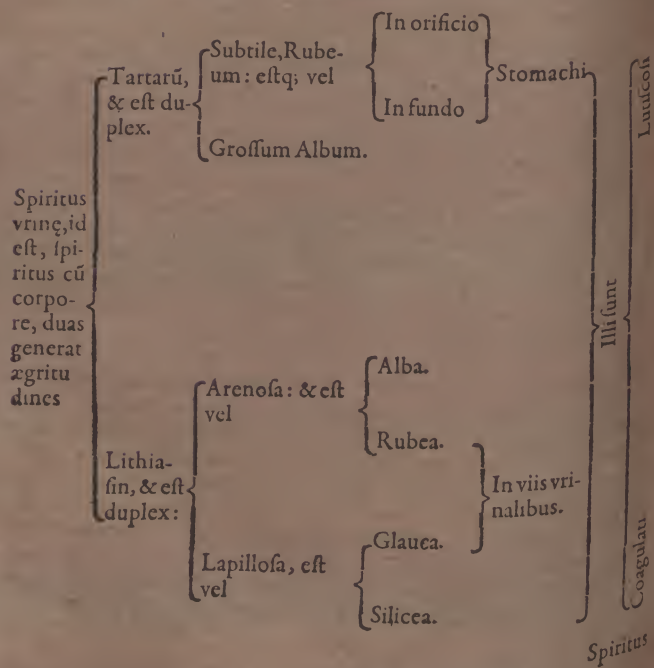 Spiritus
vrinę, id
eſt, ſpi-
ritus cū
corpo-
re, duas
generat
ægritu
dines
Tartarū,
& eſt du-
plex.
Subtile, Rube-
um : eſtq; vel
In orificio
In fundo
Stomachi
Groſſum Album.
Lithia-
ſin, & eſt
duplex:
Arenoſa : & eſt
vel
Alba.
Rubea.
Lapilloſa, eſt
vel
Glauca.
Silicea.
In viis vri-
nalibus.
Illi ſunt
Coagulati
Spiritus